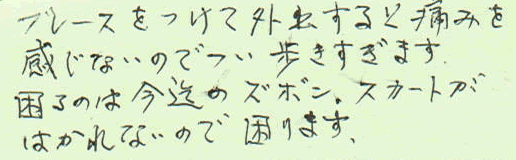 ブレースをつけて外出すると痛みを
感じないのでつい歩きすぎます
困るのは今迄のズボン、スカートが
はかれないので困ります、